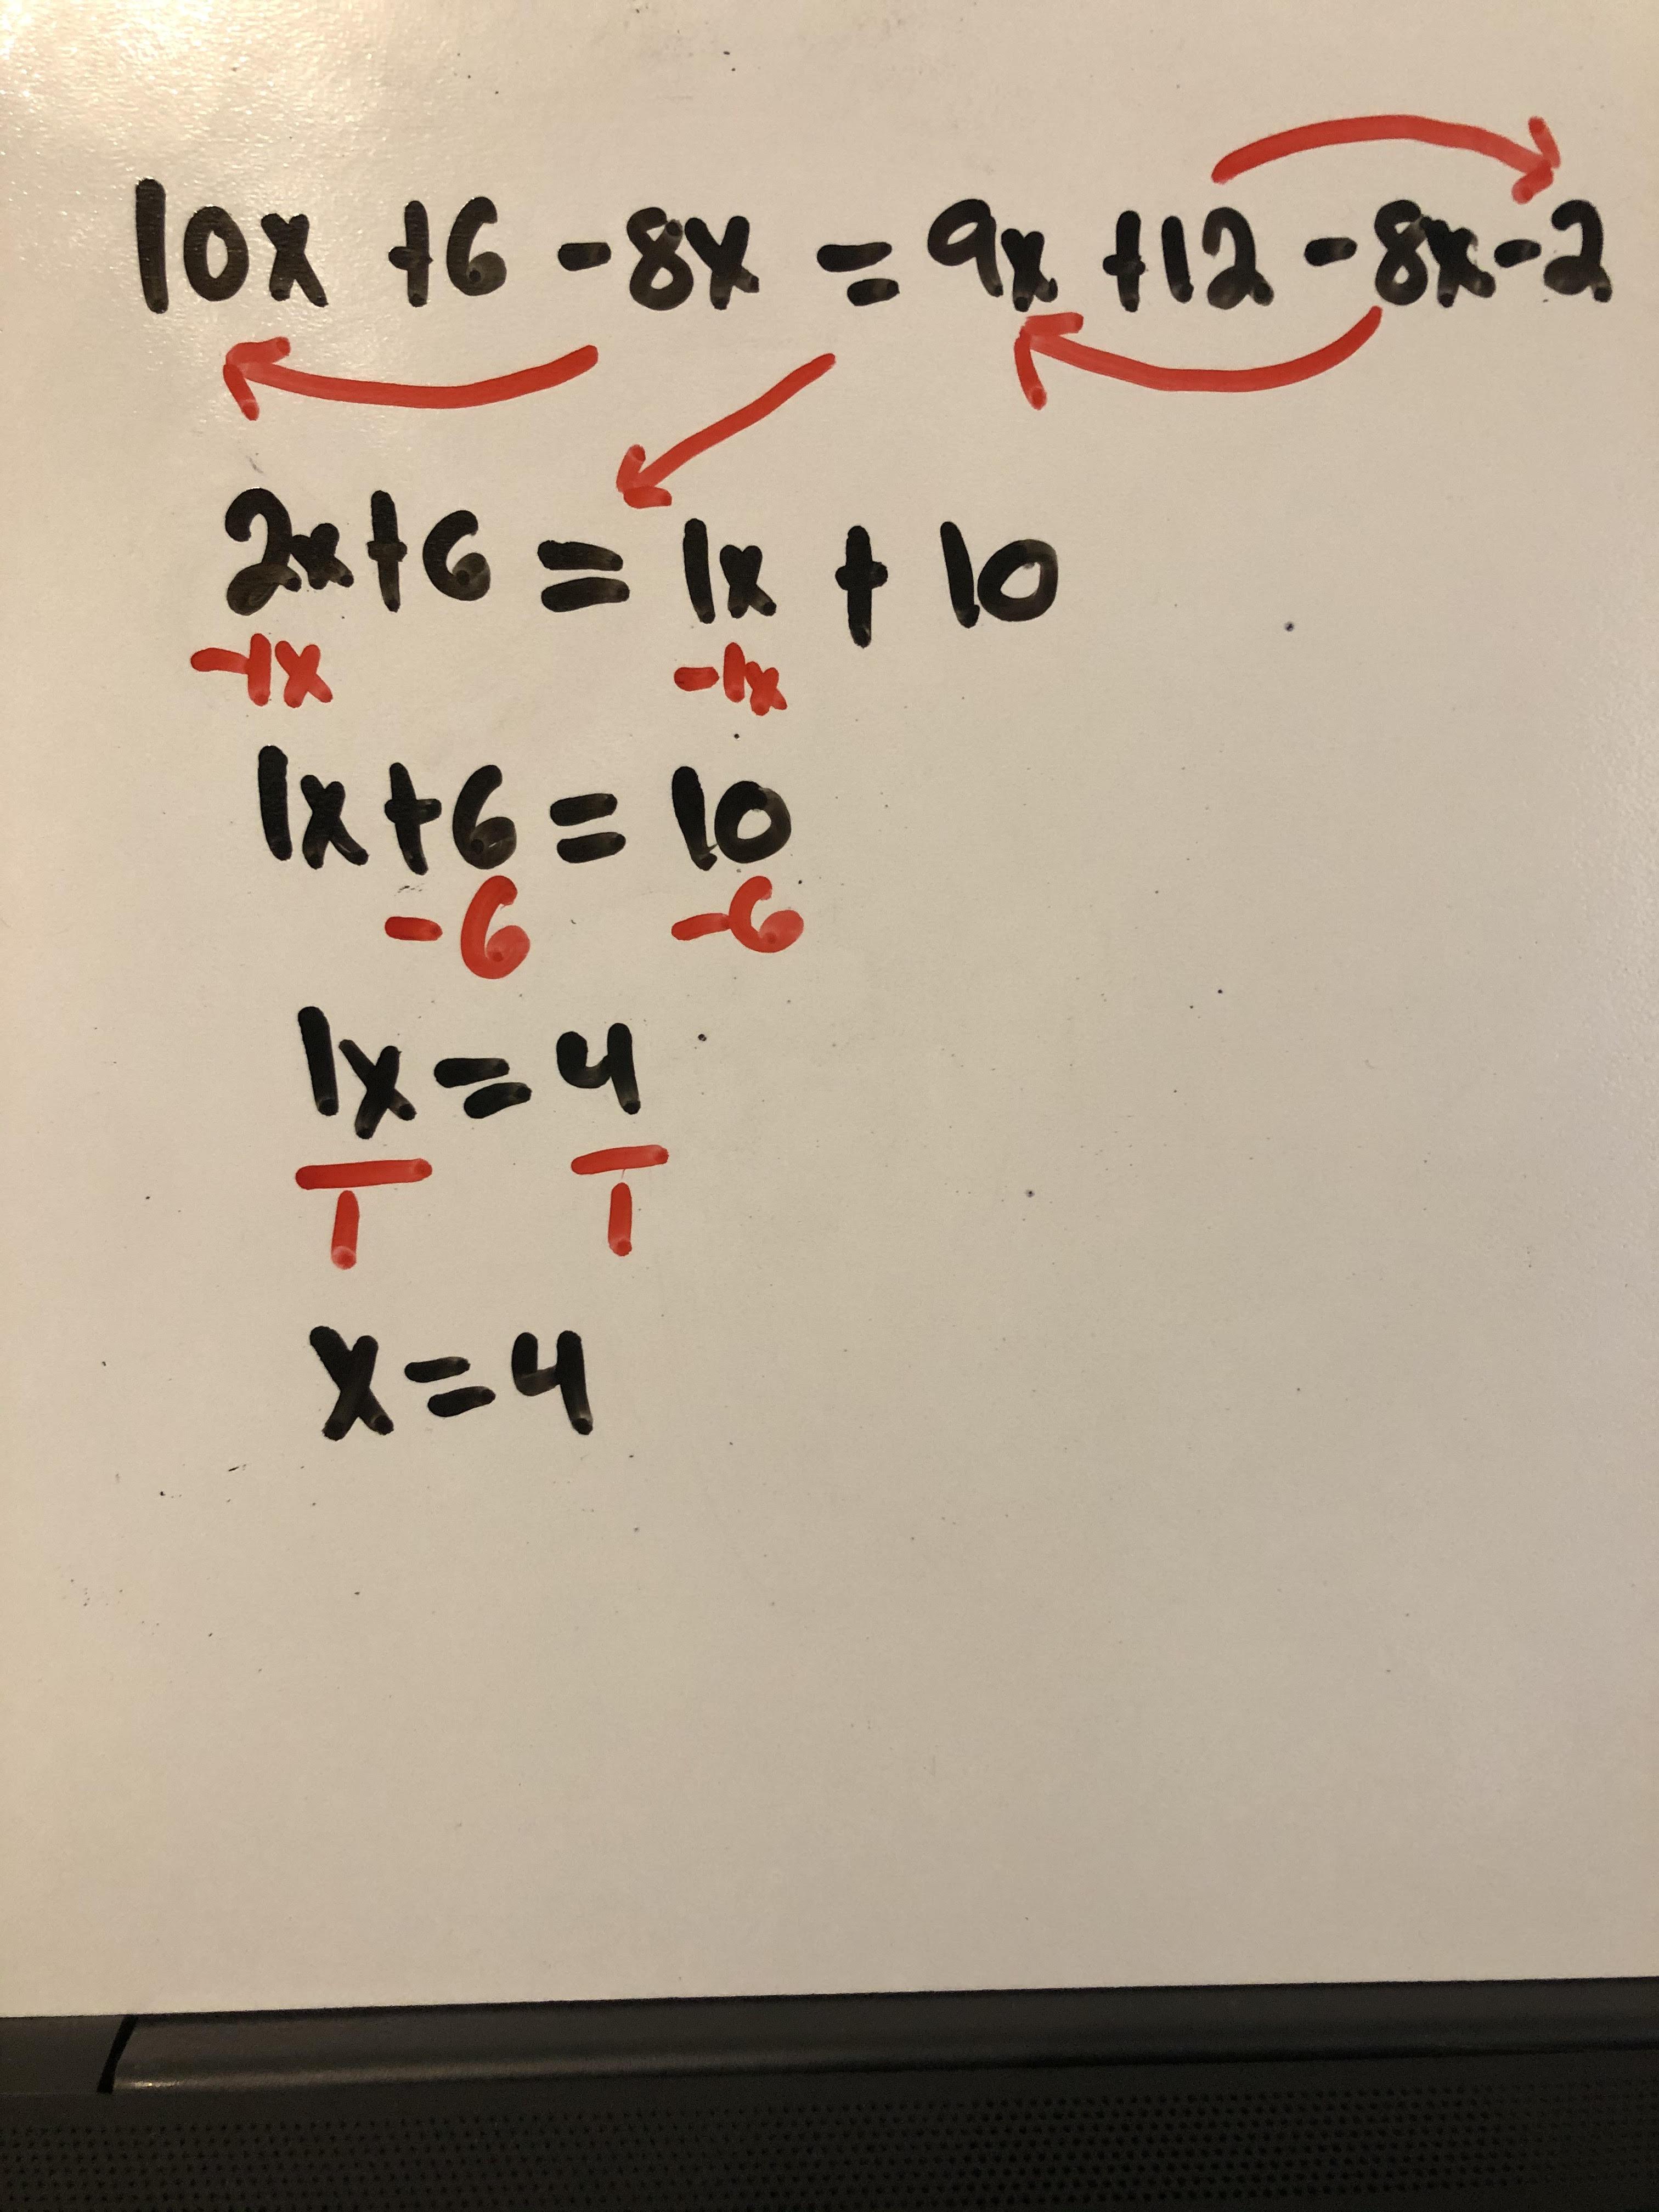 10x +6 -8x = 9x +12 -8x-2
2x+6 = 1x + 10
-1x -1x
1x+6 = 10
-6 -6
1x=4
1 1
x=4